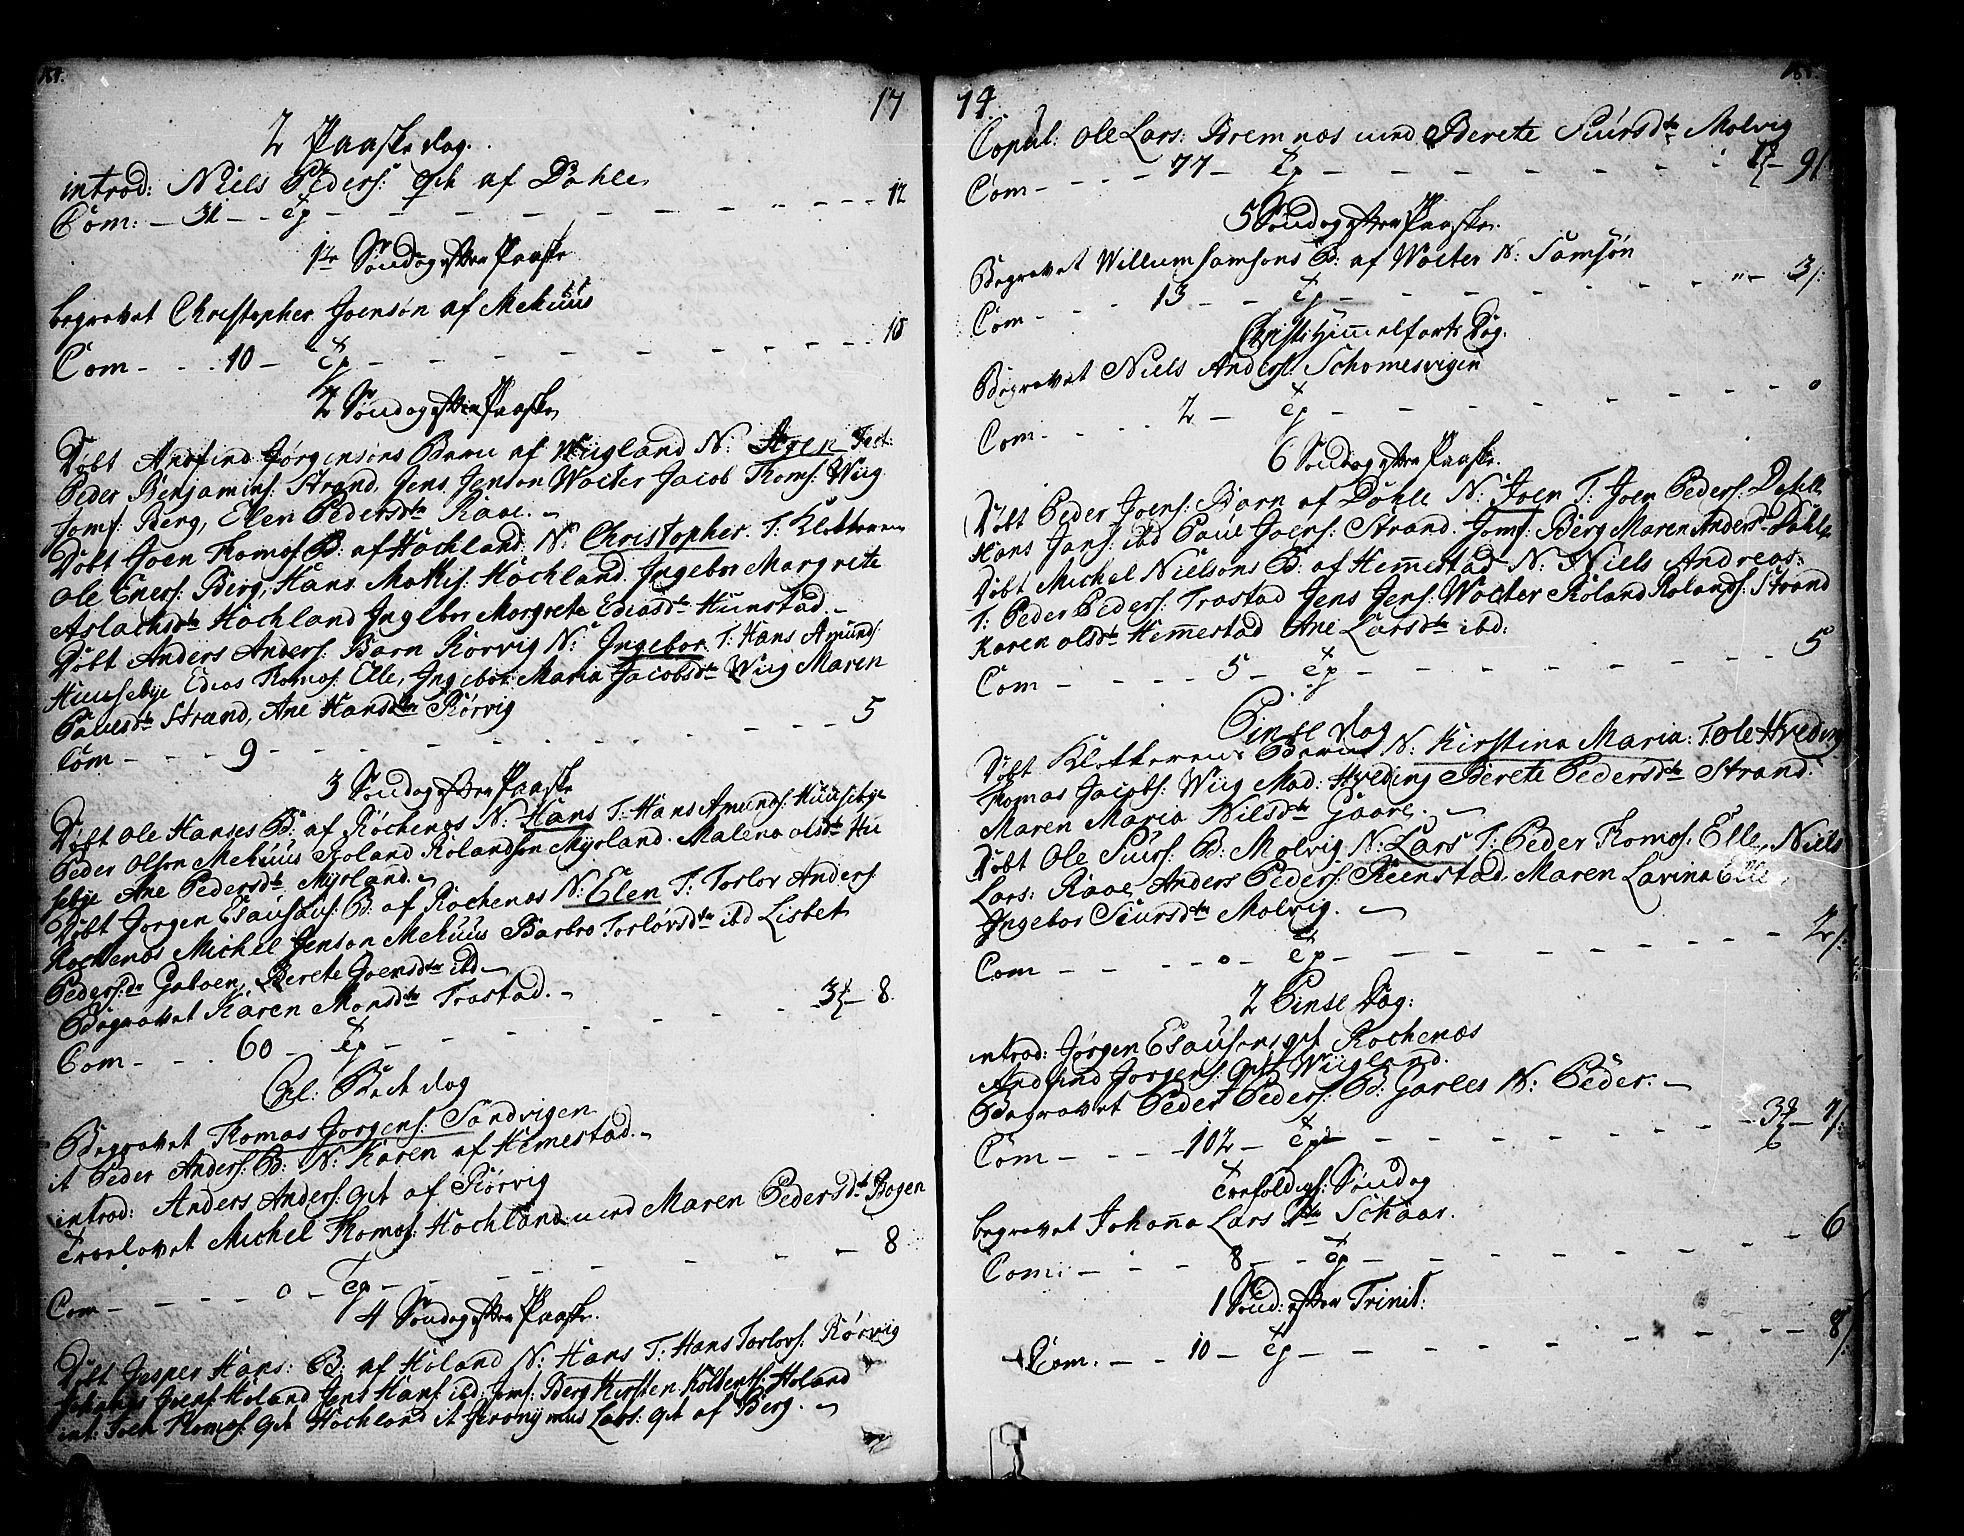 17
2 Paaske dag.
introd: Niels Peders: qvt af Dahle
Com: — 31 — — — — 12
1te Søndag efter Paaske
begravet Christopher Joensøn af Mehuus
Com — — 10 — — — 18
2 Søndag efter Paaske
Døbt Andfind Jørgensøns Barn af Wiigland N: Agen Test:
Peder Benjamins: Strand, Jens Jenson Wolter Jacob Thoms: Wiig
Jomf: Berg, Elen Pedersdtr Raae. —
Døbt Joen Thomos: B: af Hochland N: Christopher. T: Klokkeren
Ole Eners: Berg, Hans Mathis: Hochland. Ingebor Margrete
Aslachsdtr Hochland Ingebor Margrete Ediasdtr Hunstad. —
Døbt Anders Anders: Barn Rørvig N: Ingebor. T: Hans Amunds:
Huusebye Edias Thomos: Elle, Ingebor Maria Jacobsdtr Wiig Maren
Paulsdtr Strand, Ane Hansdtr Rørvig
Com — — 9 — — — 5
3 Søndag efter Paaske
Døbt Ole Hanses B: af Rochenes N: Hans T: Hans Amunds: Huusebye
Peder Olson Mehuus Roland Rolandson Myrland. Malena olsdtr Hu
sebye Ane Pedersdtr Myrland. —
Døbt Jorgen Esausøns: B: af Rochenes N: Elen T: Torlov Anders:
Rochenes Michel Jenson Mehuus Barbro Torlovsdtr ibd Lisbet
Peders:dr Gaboen, Berete Joensdtr ibd —
Begravet Karen Monsdtr Trastad. —
Com — — 60 — — — 3 — 8
Bededag
Begravet Thomas Jorgens: Sandvigen
it Peder Anders: B: N: Karen af Hemestad. —
introd: Anders Anders: qvt af Rørvig
Troelovet Michel Thomos: Hochland med Maren Pedersdtr Bogen
Com — — 0 — — — 8
4 Søndag efter Paaske.
Døbt Jesper Hans: B: af Holand N: Hans T: Hans Torlovs: Rørvig
Johanes Joens: Holand Jens Hans: ibd: Jomf: Berg Kirsten Holand
int: Joen Thomos: qvt Hochland it Jeronymus Lars: qvt af Berg. —
74.
Copul: Ole Lars: Bremnes med Berete Siursdtr Molvig
Com — — 77 — — — 91
5 Søndag efter Paaske.
Begravet Willum Samsons B: af Wolter N: Samsøn
Com — — 13 — — — 3
Christi Himmelfarts Dag.
Begravet Niels Anders: Schomesvigen
Com — — 2 — — — 0
6 Søndag efter Paaske.
Døbt Peder Joens: Barn af Dohle N: Joen T: Joen Peders: Dahle
Hans Jans: ibd Paul Joens: Strand. Jomf: Berg Maren Anders: Dahle
Døbt Michel Nielsøns B: af Hemmestad N: Niels Andreas:
T: Peder Peders: Trastad Jens Jens: Wolter Roland Rolands: Strand
Karen olsdtr Hemmestad Ane Larsdtr ibd:
Com — — 5 — — — 5
Pinse dag
Døbt Klokkerens Barn N: Kirstina Maria: T: Ole Hveding
Thomas Jacobs: Wiig Mad: Hveding Berete Pedersdtr Strand.
Maren Maria Nilsdtr Gaare. —
Døbt Ole Siurs: B: Molvig N: Lars T: Peder Thomos: Elle, Niels
Lars: Raae, Anders Peders: Reenstad. Maren Lavina Elle
Ingebor Siursdtr Molvig. —
Com — — 0 — — — 2
2 Pinse Dag:
introd: Jørgen Esausons qvt Rochenes
Andfind Jorgens: qvt Wiigland.
Begravet Peder Peders: B: Garlees N: Peder. —
Com — — 102 — — — 3 —
Trefoldigh: Søndag
begravet Johanna Larsdtr Schaar.
Com: — — 8 — — — 6
1 Sønd: efter Trinit:
Com. — — 10 — — — 8